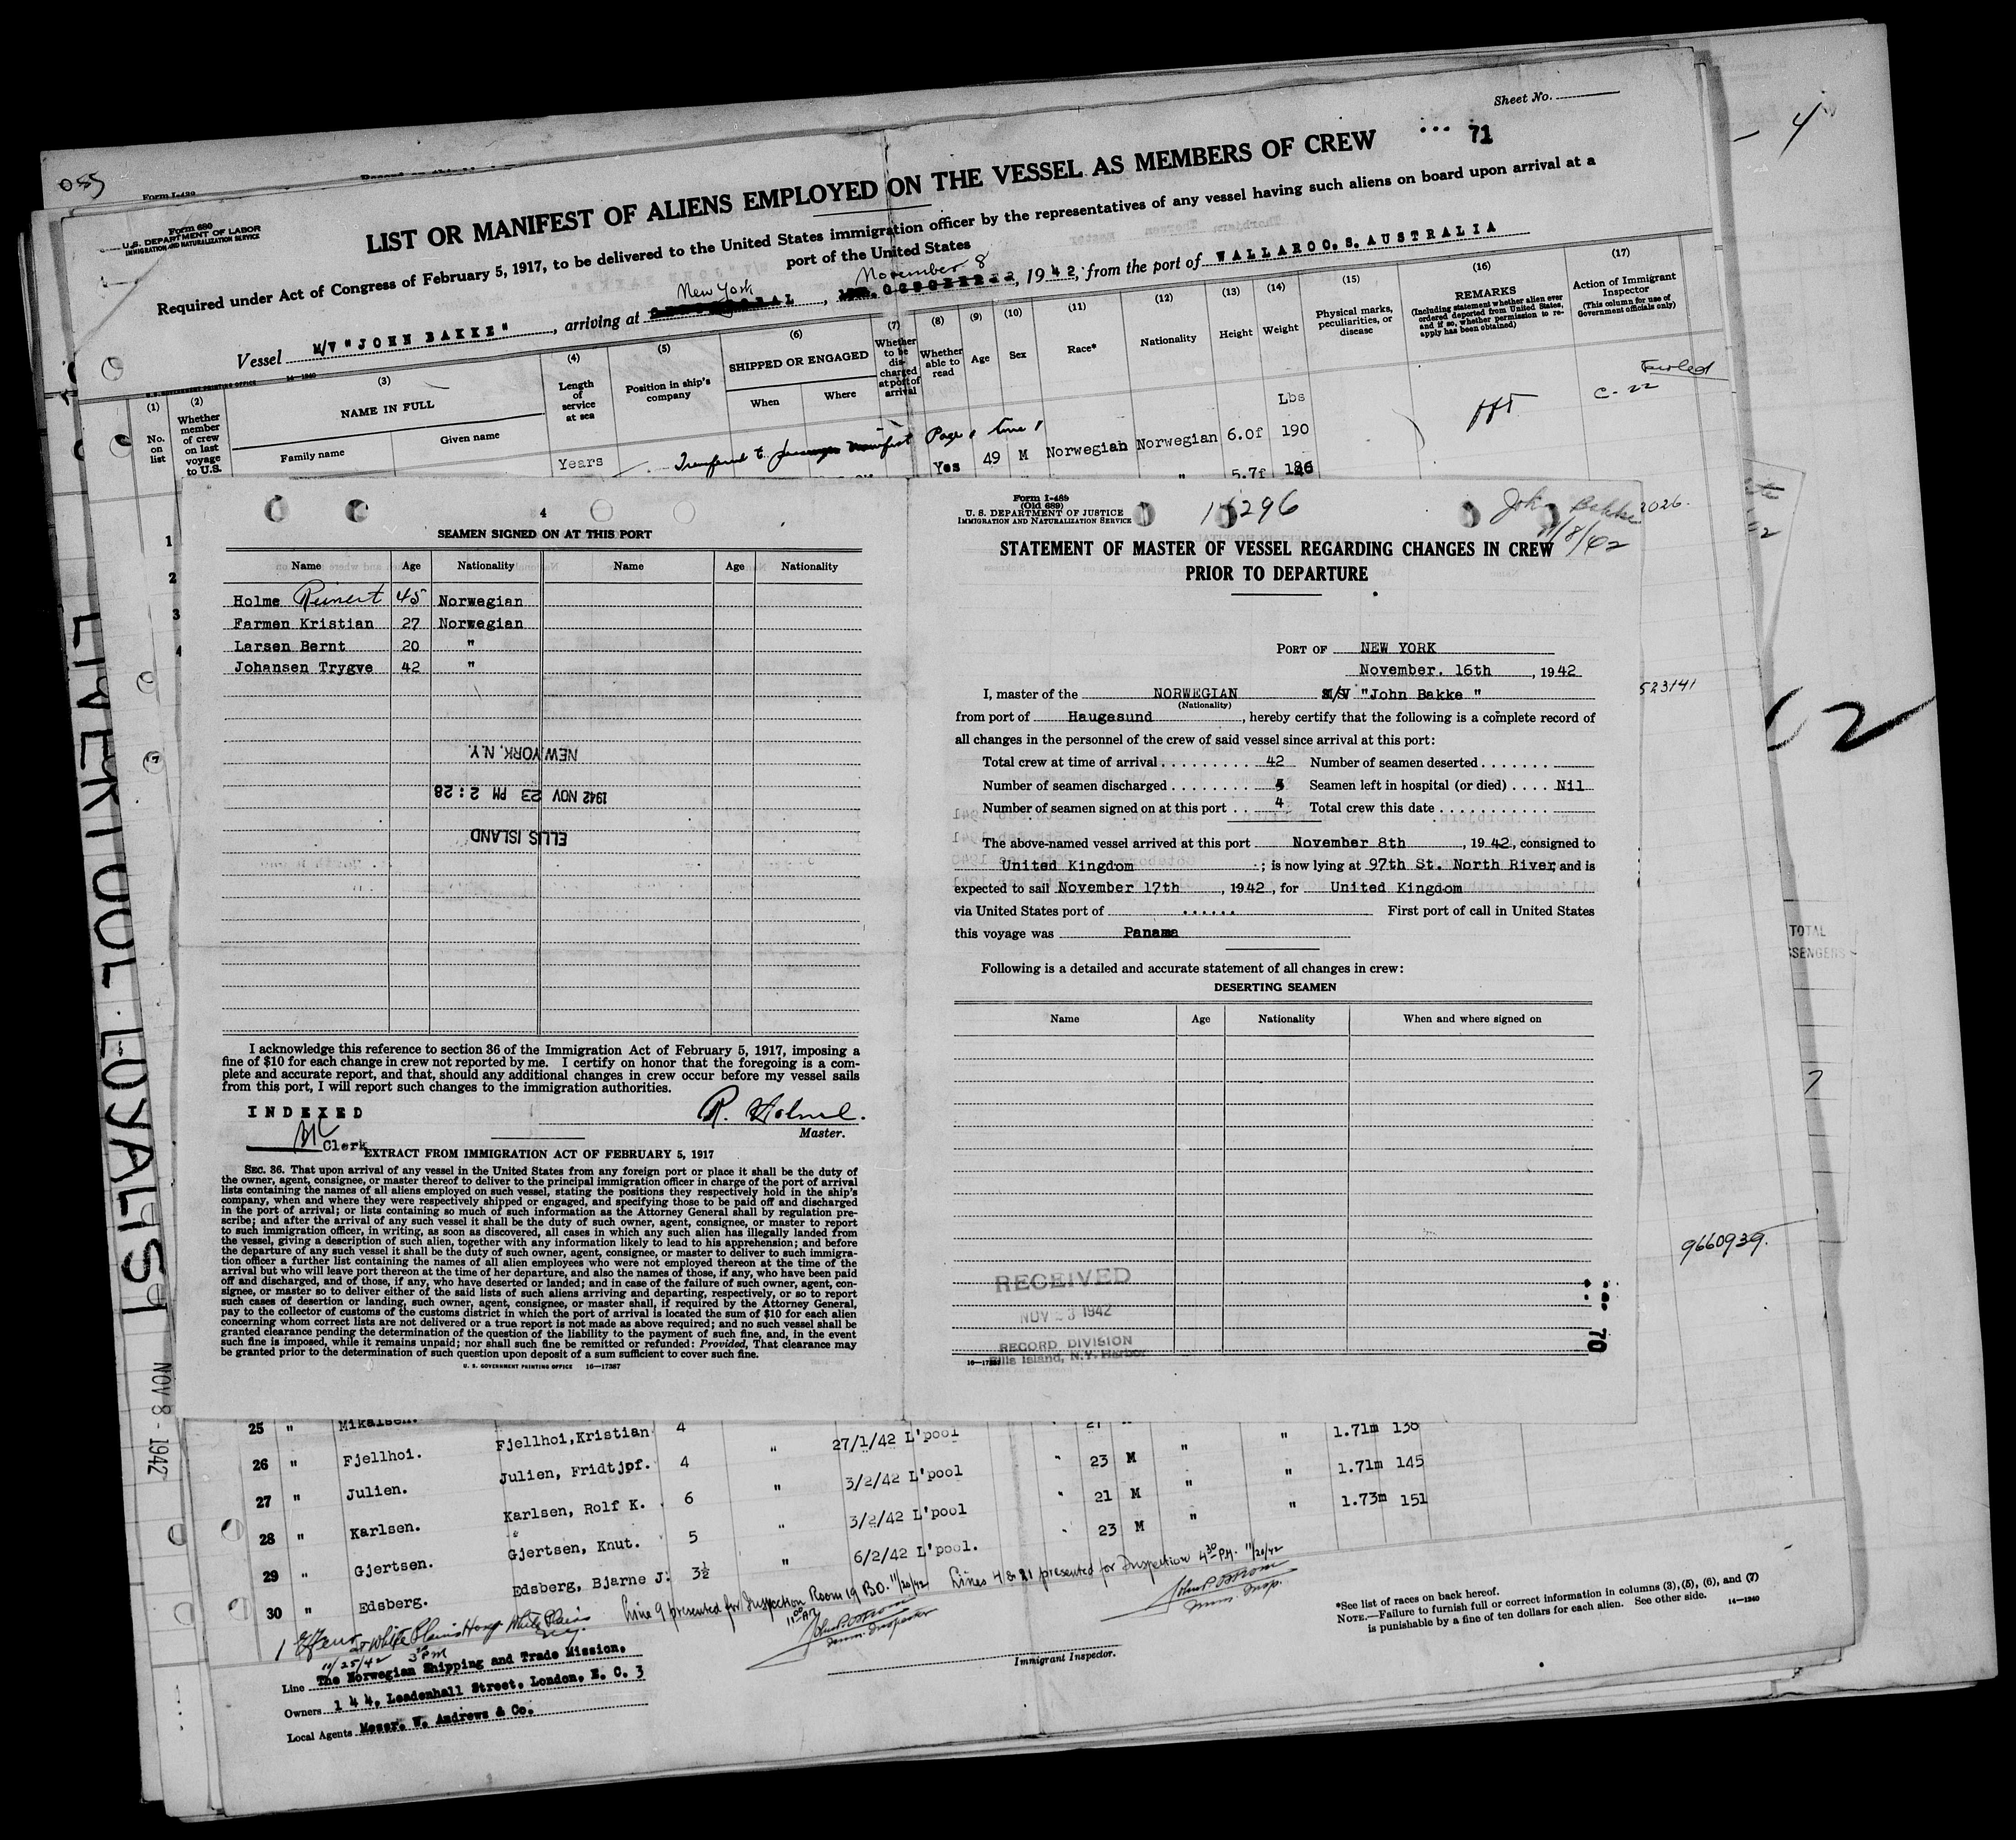 085
Form I-489
Sheet No.
71
Form 680
U.S. DEPARTMENT OF LABOR
IMMIGRATION AND NATURALIZATION SERVICE
LIST OR MANIFEST OF ALIENS EMPLOYED ON THE VESSEL AS MEMBERS OF CREW
Required under Act of Congress of February 5, 1917, to be delivered to the United States immigration officer by the representatives of any vessel having such aliens on board upon arrival at a
port of the United States
Vessel M/V "JOHN BAKKE", arriving at New York, November 8, 1942, from the port of WALLAROO. S. AUSTRALIA
(1) (2) (3) (4) (5) (6) (7) (8) (9) (10) (11) (12) (13) (14) (15) (16) (17)
No. on list
Whether member of crew on last voyage to U.S.
NAME IN FULL
Family name
Given name
Length of service at sea
Position in ship's company
SHIPPED OR ENGAGED
When
Where
Whether to be discharged at port of arrival
Whether able to read
Age
Sex
Race*
Nationality
Height
Weight
Physical marks, peculiarities, or disease
REMARKS
(Including statement whether alien ever ordered deported from United States, and if so, whether permission to reapply has been obtained)
Action of Immigrant Inspector
(This column for use of Government officials only)
Years
Lbs
Transferred to passenger manifest Page 1 line 1
Yes 49 M Norwegian Norwegian 6.0f 190
" 5.7f
C-22
1
2
3
4
SEAMEN SIGNED ON AT THIS PORT
Name Age Nationality Name Age Nationality
Holme Reinert 45 Norwegian
Farmen Kristian 27 Norwegian
Larsen Bernt 20 "
Johansen Trygve 42 "
NEW YORK, N.Y.
1942 NOV 23 PM 2:28
ELLIS ISLAND
I acknowledge this reference to section 36 of the Immigration Act of February 5, 1917, imposing a
fine of $10 for each change in crew not reported by me. I certify on honor that the foregoing is a com-
plete and accurate report, and that, should any additional changes in crew occur before my vessel sails
from this port, I will report such changes to the immigration authorities.
INDEXED
Clerk
R. Holme.
Master.
EXTRACT FROM IMMIGRATION ACT OF FEBRUARY 5, 1917
SEC. 36. That upon arrival of any vessel in the United States from any foreign port or place it shall be the duty of
the owner, agent, consignee, or master thereof to deliver to the principal immigration officer in charge of the port of arrival
lists containing the names of all aliens employed on such vessel, stating the positions they respectively hold in the ship's
company, when and where they were respectively shipped or engaged, and specifying those to be paid off and discharged
in the port of arrival; or lists containing so much of such information as the Attorney General shall by regulation pre-
scribe; and after the arrival of any such vessel it shall be the duty of such owner, agent, consignee, or master to report
to such immigration officer, in writing, as soon as discovered, all cases in which any such alien has illegally landed from
the vessel, giving a description of such alien, together with any information likely to lead to his apprehension; and before
the departure of any such vessel it shall be the duty of such owner, agent, consignee, or master to deliver to such immigra-
tion officer a further list containing the names of all alien employees who were not employed thereon at the time of the
arrival but who will leave port thereon at the time of her departure, and also the names of those, if any, who have been paid
off and discharged, and of those, if any, who have deserted or landed; and in case of the failure of such owner, agent, con-
signee, or master so to deliver either of the said lists of such aliens arriving and departing, respectively, or so to report
such cases of desertion or landing, such owner, agent, consignee, or master shall, if required by the Attorney General,
pay to the collector of customs of the customs district in which the port of arrival is located the sum of $10 for each alien
concerning whom correct lists are not delivered or a true report is not made as above required; and no such vessel shall be
granted clearance pending the determination of the question of the liability to the payment of such fine, and, in the event
such fine is imposed, while it remains unpaid; nor shall such fine be remitted or refunded: Provided, That clearance may
be granted prior to the determination of such question upon deposit of a sum sufficient to cover such fine.
U. S. GOVERNMENT PRINTING OFFICE 16—17387
Form I-489
(Old 689)
U. S. DEPARTMENT OF JUSTICE
IMMIGRATION AND NATURALIZATION SERVICE
John Bakke
11/8/42
STATEMENT OF MASTER OF VESSEL REGARDING CHANGES IN CREW
PRIOR TO DEPARTURE
PORT OF NEW YORK
November. 16th, 1942
I, master of the NORWEGIAN M/V "John Bakke "
(Nationality)
from port of Haugesund, hereby certify that the following is a complete record of
all changes in the personnel of the crew of said vessel since arrival at this port:
Total crew at time of arrival 42 Number of seamen deserted
Number of seamen discharged Seamen left in hospital (or died) Nil
Number of seamen signed on at this port 4 Total crew this date
The above-named vessel arrived at this port November 8th, 1942, consigned to
United Kingdom; is now lying at 97th St. North River, and is
expected to sail November 17th, 1942, for United Kingdom
via United States port of ...... First port of call in United States
this voyage was Panama
Following is a detailed and accurate statement of all changes in crew:
DESERTING SEAMEN
Name Age Nationality When and where signed on
RECEIVED
NOV 23 1942
RECORD DIVISION
Ellis Island, N.Y. Harbor
70
2026.
523141
9660939.
TOTAL
PASSENGERS
LIVERPOOL LOYALIST
NOV 8- 1942
25 " Mikalsen. 4 27/1/42 L'pool 1.71m 138
26 " Fjellhoi. Fjellhoi,Kristian 4 " 3/2/42 L'pool 23 M " " 1.71m 145
27 " Julien. Julien, Fridtjof. 6 " 3/2/42 L'pool 21 M " " 1.73m 151
28 " Karlsen. Karlsen, Rolf K. 5 " 6/2/42 L'pool. 23 M " "
29 " Gjertsen. Gjertsen, Knut. 3½ "
30 " Edsberg. Edsberg, Bjarne J.
Line 9 presented for Inspection Room 19 B.O. 11/20/42
Lines 4 & 21 presented for Inspection 4 30 P.M. 11/20/42
11/25/42 3 PM
Immigrant Inspector.
Line The Norwegian Shipping and Trade Mission.
Owners 1 4 4, Leadenhall Street, London. E. C. 3
Local Agents Messr. W. Andrews & Co.
*See list of races on back hereof.
NOTE.—Failure to furnish full or correct information in columns (3), (5), (6), and (7)
is punishable by a fine of ten dollars for each alien. See other side. 14—1240